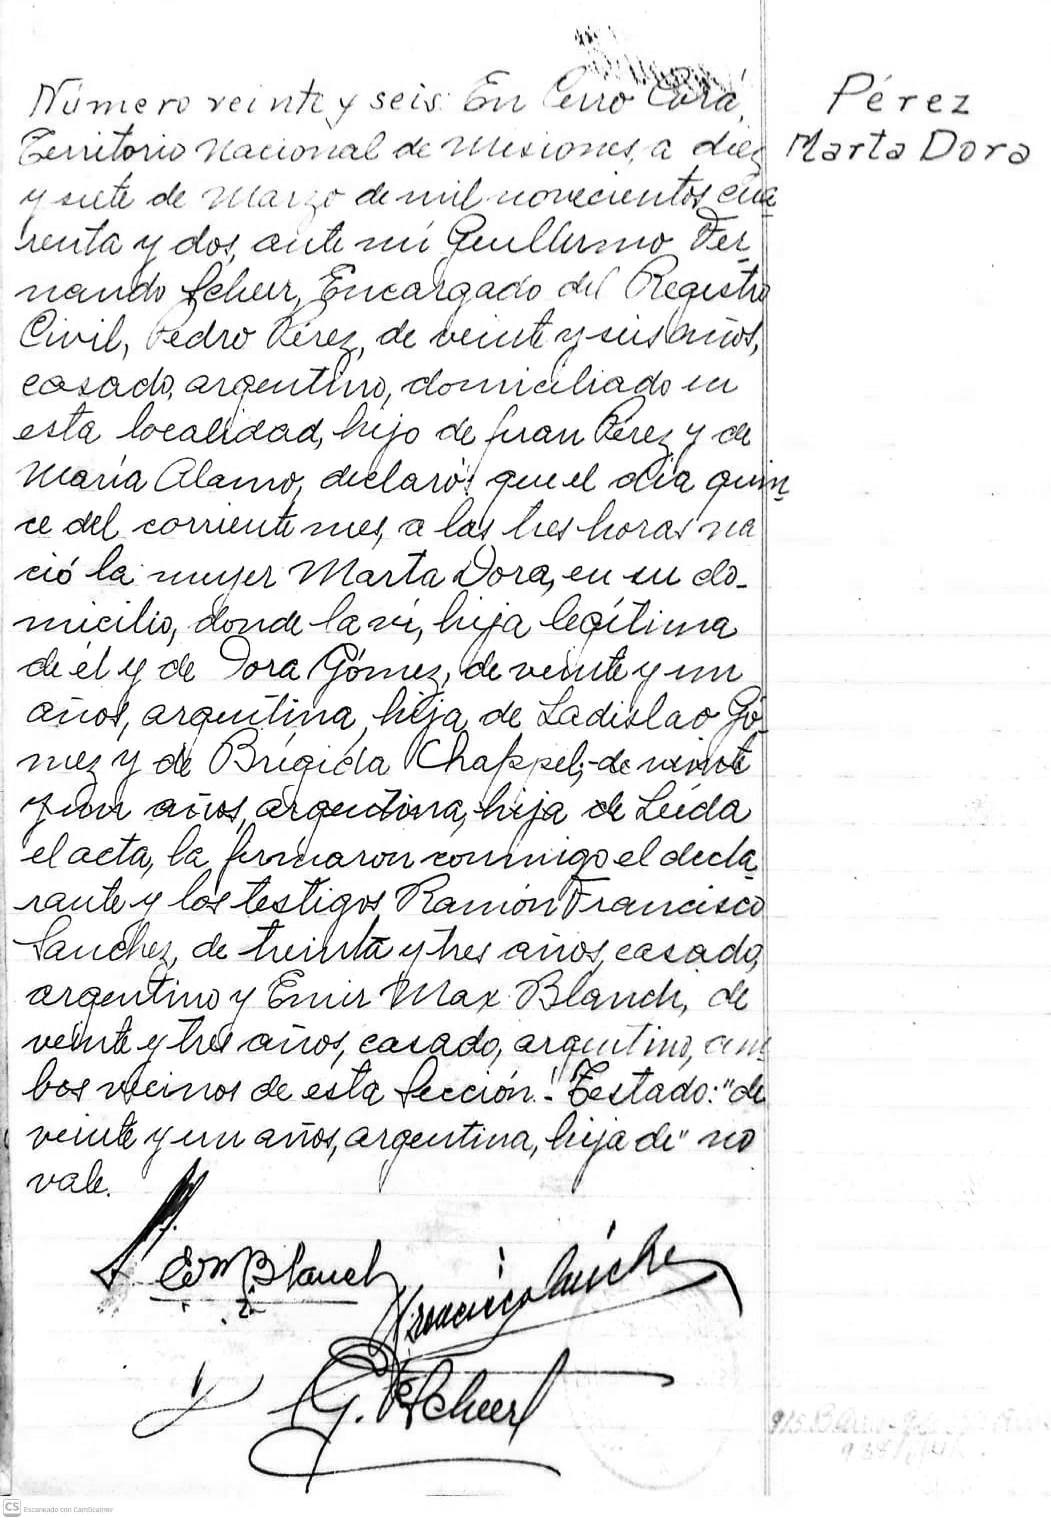 Número veinte y seis: En Cerro Corá,
Territorio Nacional de Misiones, a diez
y siete de Marzo de mil novecientos cua-
renta y dos, ante mí Guillermo Fer-
nando Scheer, Encargado del Registro
Civil, Pedro Pérez, de veinte y seis años,
casado, argentino, domiciliado en
esta localidad, hijo de Juan Pérez y de
María Alamo, declaró: que el día quin-
ce del corriente mes, a las tres horas na
ció la mujer Marta Dora, en su do-
micilio, donde la ví, hija legítima
de él y de Dora Gómez, de veinte y un
años, argentina, hija de Ladislao Gó-
mez y de Brígida Chappel;-de veinte
y un años, argentina, hija de Leída
el acta, la firmaron conmigo el decla-
rante y los testigos Ramón Francisco
Sanchez, de treinta y tres años, casado,
argentino y Emir Max Blanch, de
veinte y tres años, casado, argentino, am-
bos vecinos de esta Sección.- Testado: "de
veinte y un años, argentina, hija de" no
vale.
Pérez
Marta Dora
EM Blanch
Francisco Sánchez
G. F. Scheer
CS Escaneado con CamScanner